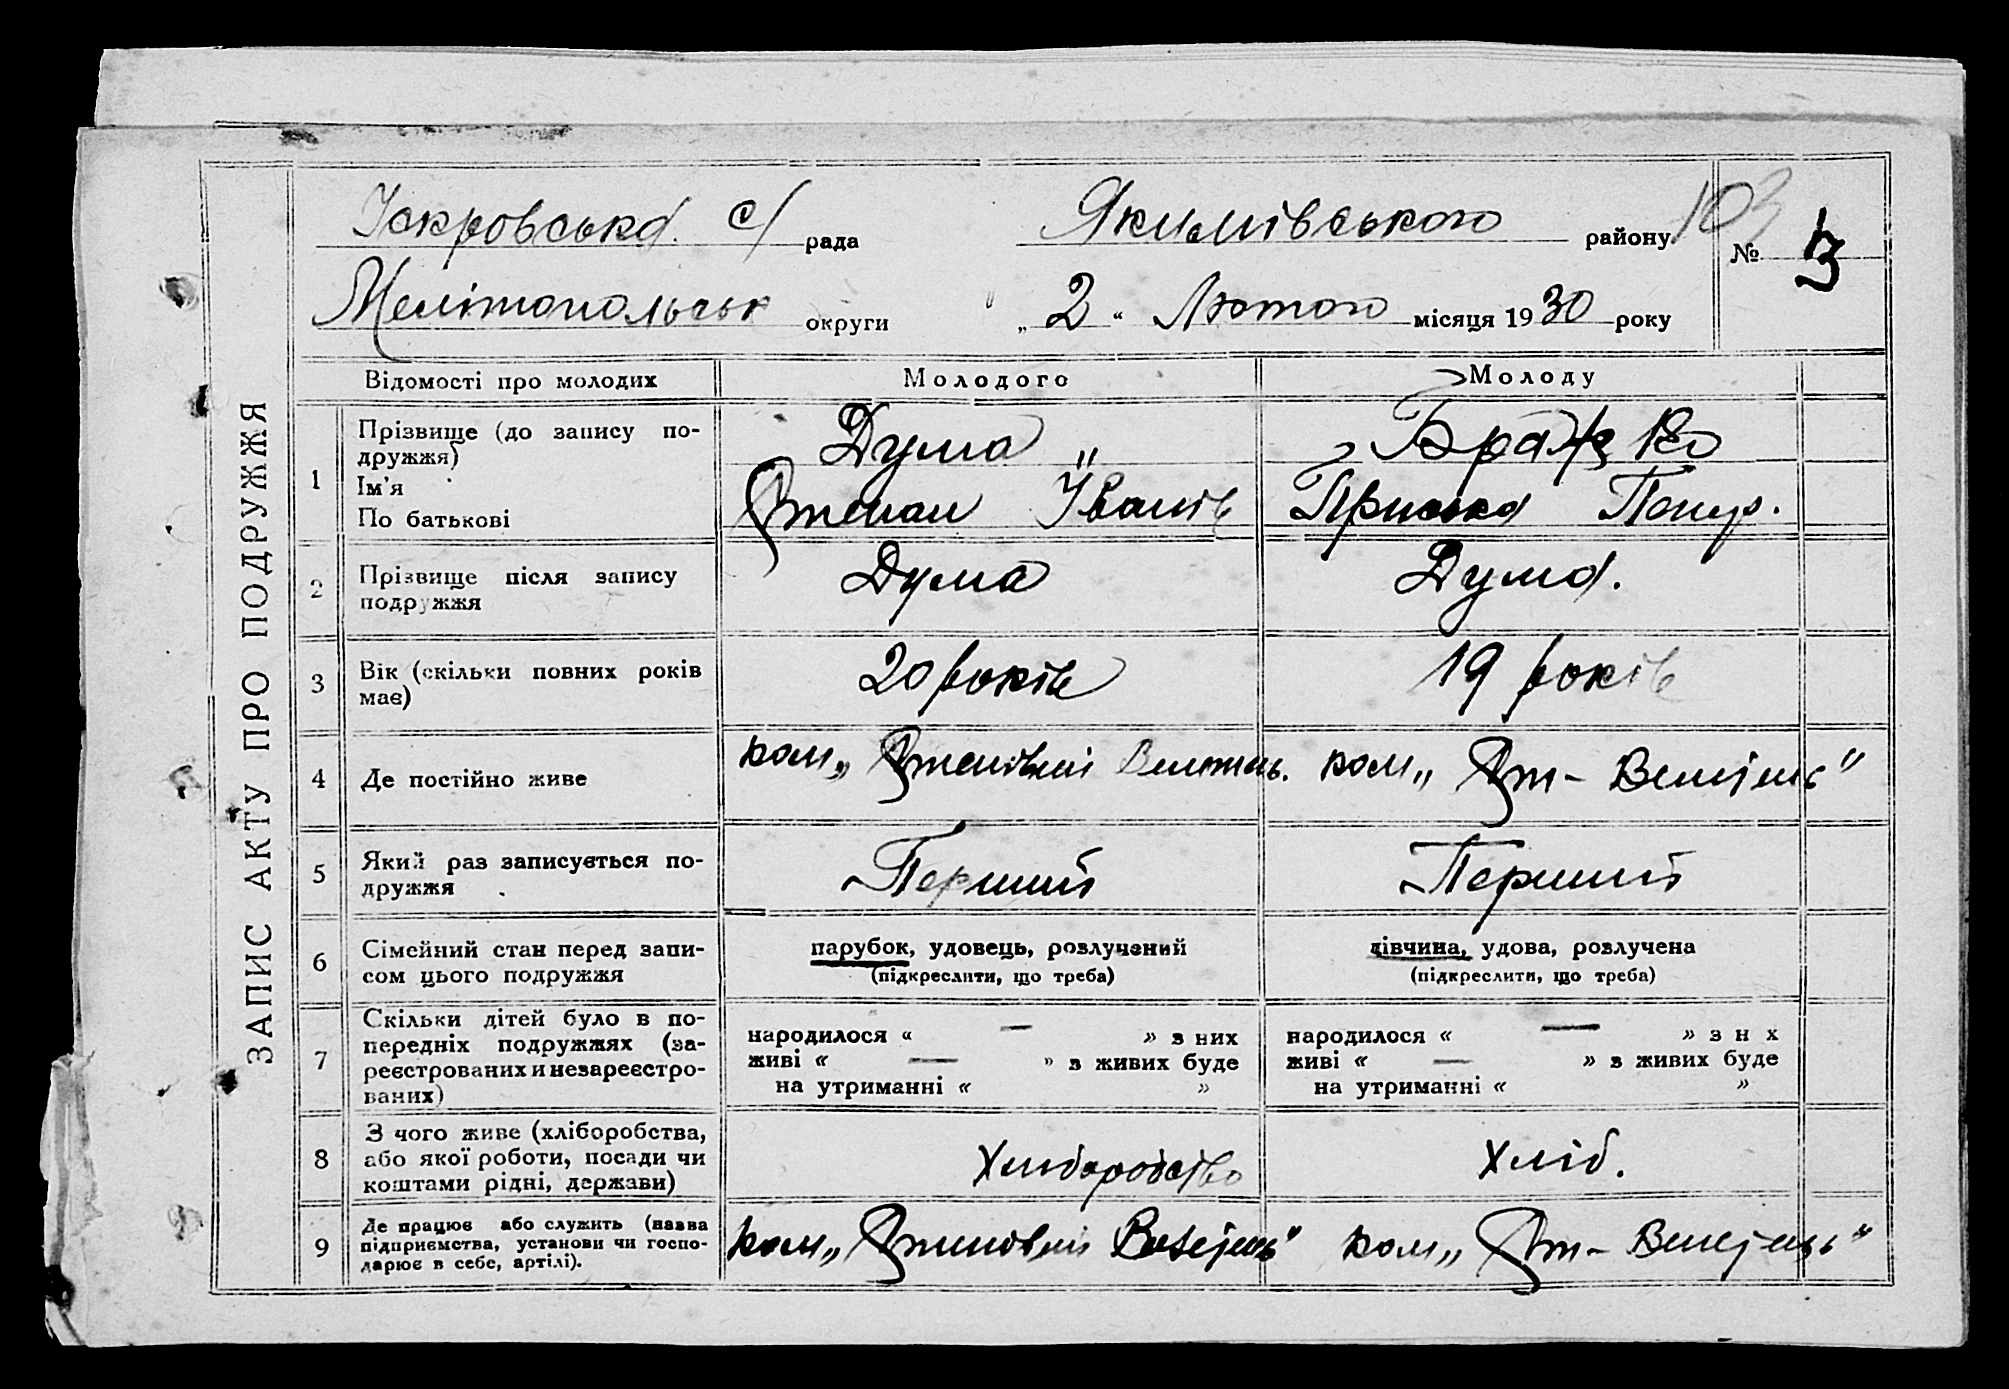 ЗАПИС АКТУ ПРО ПОДРУЖЖЯ
Іскровська с/ рада Якимівського району 103
№ 3
Мелітопольськ округи „ 2 “ Лютого місяця 1930 року
Відомості про молодих Молодого Молоду
1 Прізвище (до запису по-
дружжя) Дума
Ім'я
По батькові Степан Іванів Пріська
2 Прізвище після запису
подружжя Дума Дума.
3 Вік (скільки повних років
має) 20 років 19 років
4 Де постійно живе ком„ Степовий ком„ Ст-
5 Який раз записується по-
дружжя Перший Перший
6 Сімейний стан перед запи-
сом цього подружжя
парубок, удовець, розлучений
(підкреслити, що треба)
дівчина, удова, розлучена
(підкреслити, що треба)
7 Скільки дітей було в по-
передніх подружжях (за-
реєстрованих и незареєстро-
ваних)
народилося « — » з них
живі « — » з живих буде
на утриманні « »
народилося « — » з н х
живі « — » з живих буде
на утриманні « »
8 З чого живе (хліборобства,
або якої роботи, посади чи
коштами рідні, держави) Хліборобство Хліб.
9 Де працює або служить (назва
підприємства, установи чи госпо-
дарює в себе, артілі). ком„ Степовий ком„ Ст-